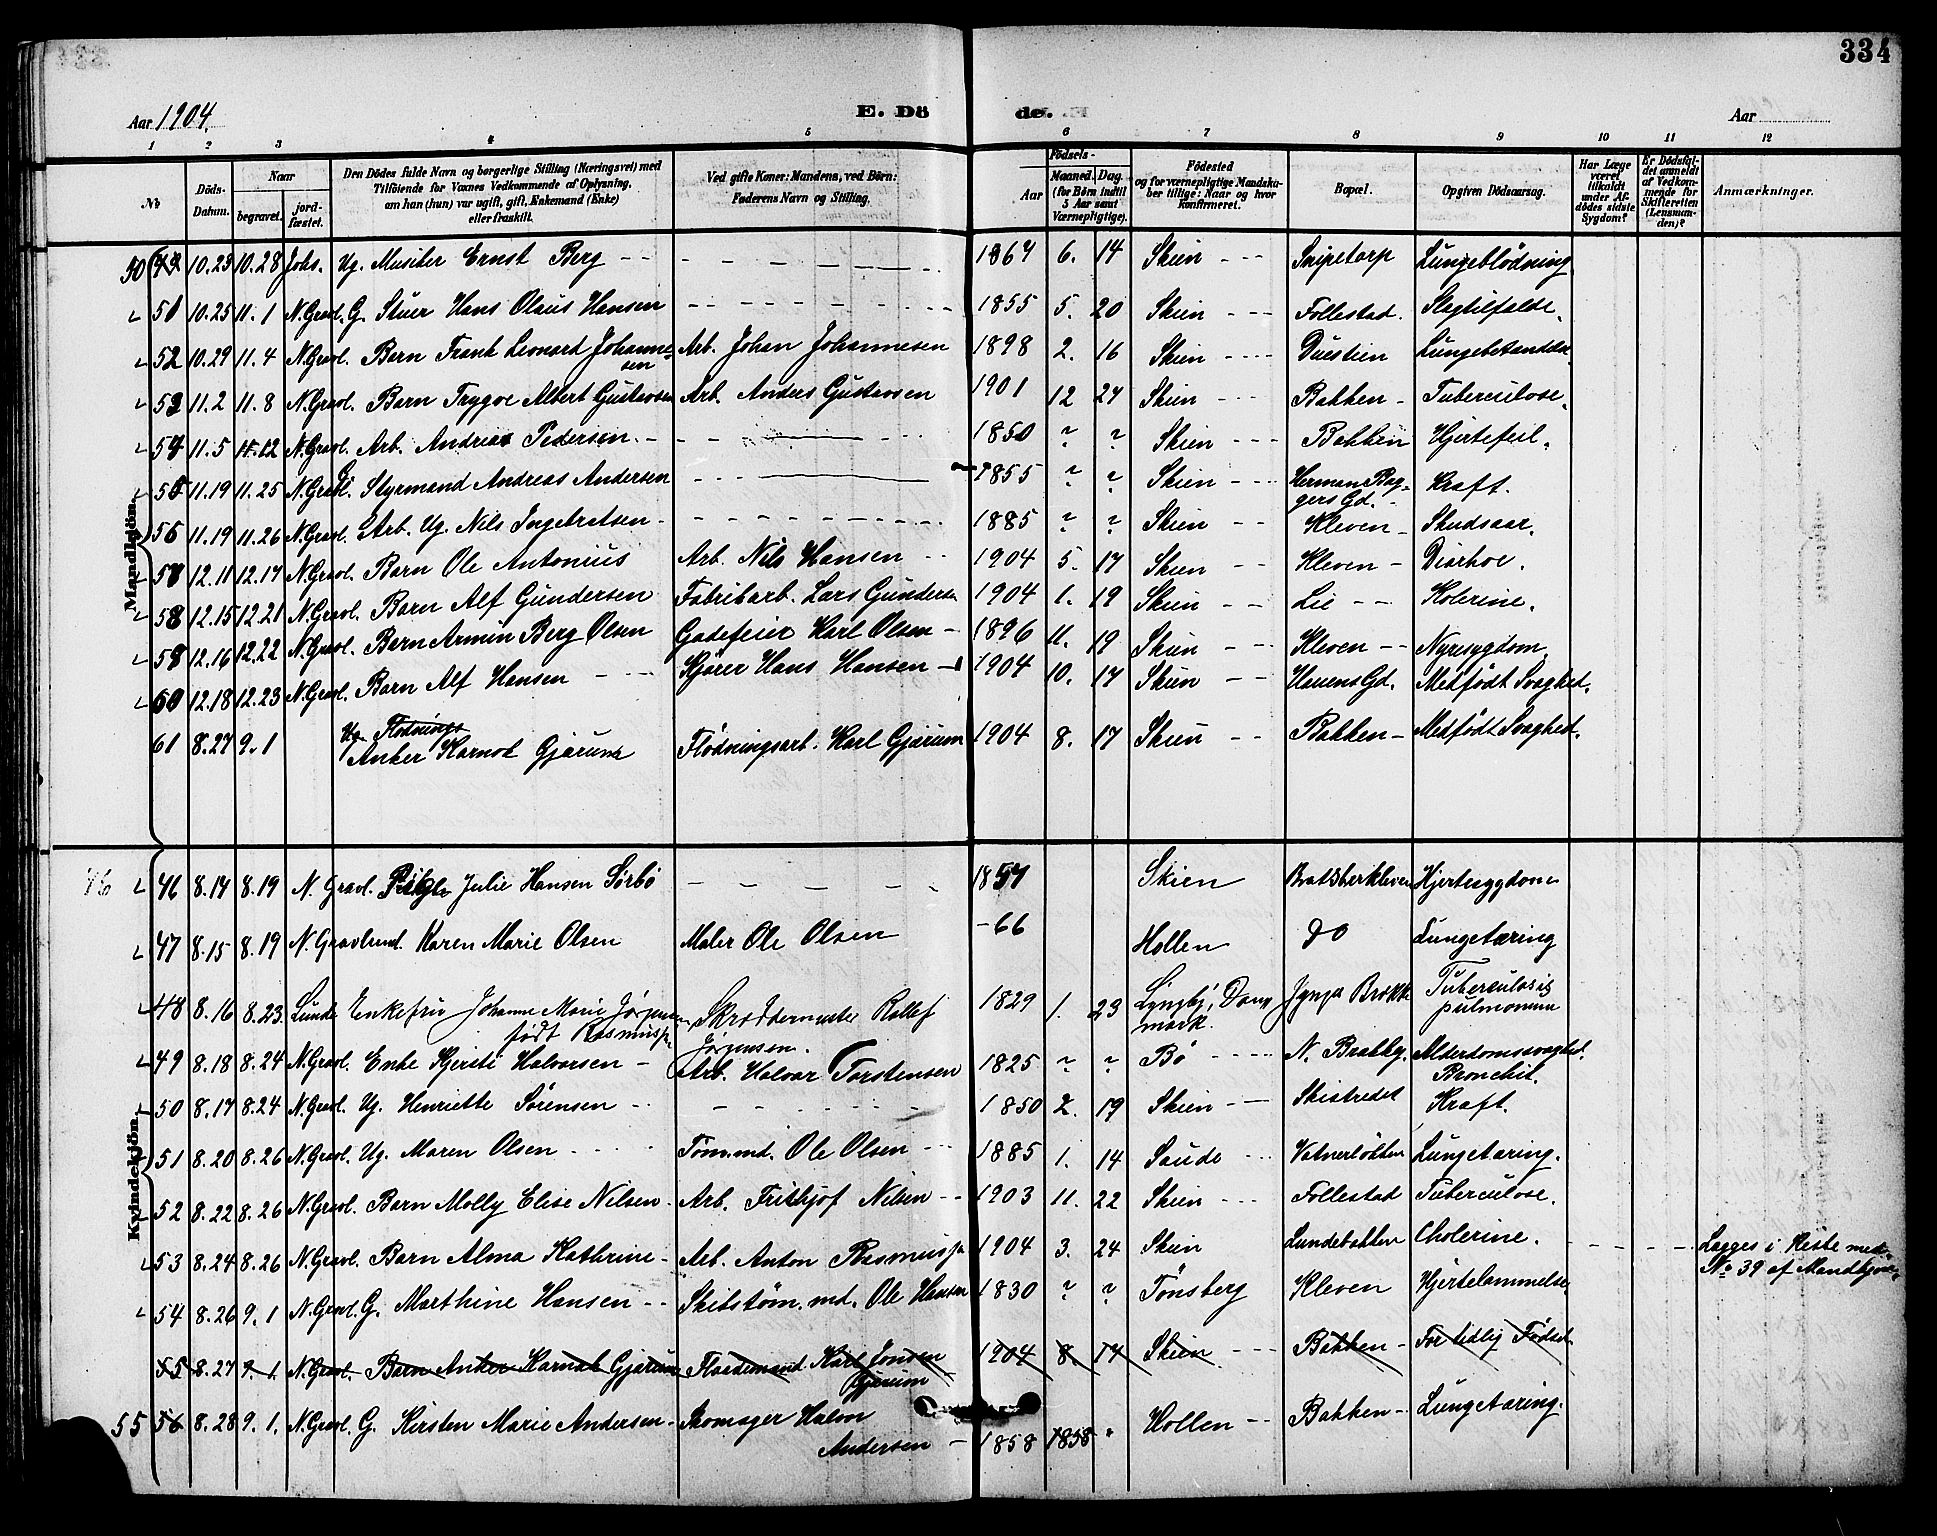 334
Aar 1904.
E. Dö de.
Aar
1 2 3 4 5 6 7 8 9 10 11 12
No
Döds-Datum.
Naar
begravet.
jord-fæstet.
Den Dödes fulde Navn og borgerlige Stilling (Næringsvei) med Tilföiende for Voxnes Vedkommende af Oplysning, om han (hun) var ugift, gift, Enkemand (Enke) eller fraskilt.
Ved gifte Koner: Mandens, ved Börn: Faderens Navn og Stilling.
Födsels-
Aar
Maaned. Dag.
(for Börn indtil 5 Aar samt Værnepligtige).
Födested og for værnepligtige Mandskaber tillige: Naar og hvor konfirmeret.
Bopæl.
Opgiven Dödsaarsag.
Har Læge været tilkaldt under Afdödes sidste Sygdom?
Er Dödsfaldet anmeldt af Vedkommende for Skifteretten (Lensmanden)?
Anmærkninger.
Mandkjön.
50 10.23 10.28 Johs. Ug. Musiker Ernst Berg 1867 6. 14 Skien Snipetorp Lungeblödning
51 10.25 11.1 N.Gravl. G. Stuer Hans Olaus Hansen 1855 5. 20 Skien Follestad. Slagtilfælde.
52 10.29 11.4 N.Gravl. Barn Frank Leonard Johannesen Arb. Johan Johannesen 1898 2. 16 Skien Duestien Lungebetændelse
53 11.2 11.8 N.Gravl. Barn Trygve Albert Gustavsen Arb. Anders Gustavsen 1901 12 24 Skien Bakken Tuberculose.
54 11.5 11.12 N.Gravl. Arb. Andreas Pedersen 1850 ? ? Skien Bakken Hjertefeil.
55 11.19 11.25 N.Gravl. G. Styrmand Andreas Andersen 1855 ? ? Skien Herman Baggers Gd. Kræft.
56 11.19 11.26 N.Gravl. Arb. Ug. Nils Ingebretsen 1885 ? ? Skien Kleven Skudsaar.
57 12.11 12.17 N.Gravl. Barn Ole Antonius Arb. Nils Hansen 1904 5. 17 Skien Kleven Diarhoe.
58 12.15 12.21 N.Gravl. Barn Alf Gundersen Fabrikarb. Lars Gundersen 1904 1. 19 Skien Lie Kolerine.
59 12.16 12.22 N.Gravl. Barn Armin Berg Olsen Gadefeier Karl Olsen 1896 11. 19 Skien Kleven Nyresygdom
60 12.18 12.23 N.Gravl. Barn Alf Hansen Kjører Hans Hansen 1904 10. 17 Skien Hauens Gd. Medfödt Svaghed.
61 8.27 9.1 Ug. Flödnings Anker Karnot Gjærum Flödningsarb. Karl Gjærum 1904 8. 17 Skien Bakken Medfödt Svaghed.
Kvindekjön.
46 46 8.14 8.19 N. Gravl. Julie Hansen Sörbö 1857 Skien Bratsberkleven Hjertesygdom
47 8.15 8.19 N. Gravlund. Karen Marie Olsen Maler Ole Olsen -66 Hollen Do Lungetæring
48 8.16 8.23 Lunde Enkefru Johanne Marie Jørgensen, født Rasmussen Skræddermester Rollef Jørgensen. 1829 1. 23 Lyngby, Danmark. Jynja Brække Tuberculosis pulmonum
49 8.18 8.24 N.Gravl. Enke Kjersti Halvorsen Arb. Halvor Torstensen 1825 ? ? Bø N. Brække. Alderdomssvaghed. Bronchit.
50 8.17 8.24 N.Gravl. Ug. Henriette Sørensen 1850 2. 19 Skien Skistredet Kræft.
51 8.20 8.26 N.Gravl. Ug. Maren Olsen Tøm.md. Ole Olsen 1885 1. 14 Saude Vatnerløkken Lungetæring.
52 8.22 8.26 N.Gravl. Barn Molly Elise Nilsen Arb. Frithjof Nilsen 1903 11. 22 Skien Follestad Tuberculose.
53 8.24 8.26 N.Gravl. Barn Alma Kathrine Arb. Anton Rasmussen 1904 3. 24 Skien Lundebakken Cholerine. Lægges i Kiste med No 39 af Mandkjøn.
54 8.26 9.1 N.Gravl. G. Marthine Hansen Skibstøm.md. Ole Hansen 1830 ? ? Tønsberg Kleven Hjertelammelse
55 8.27 9.1. N.Gravl. Barn Anker Karnot Gjærum Flødemand Karl Jonsen Gjærum 1904 8. 17 Skien Bakken For tidlig Födsel
55 56 8.28 9.1. N.Gravl. G. Kirsten Marie Andersen Skomager Halvor Andersen 1858 1858 Hollen Bakken Lungetæring.